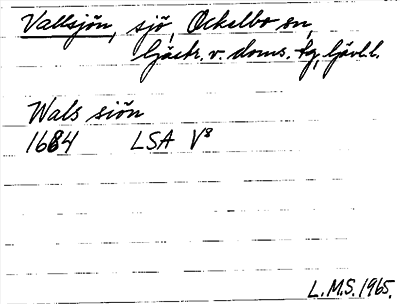 Vallsjön, sjö, Ockelbo sn,
Gästr. v. doms. tg, Gävl. l.
Wals siön
1684 LSA V8
L.M.S. 1965.